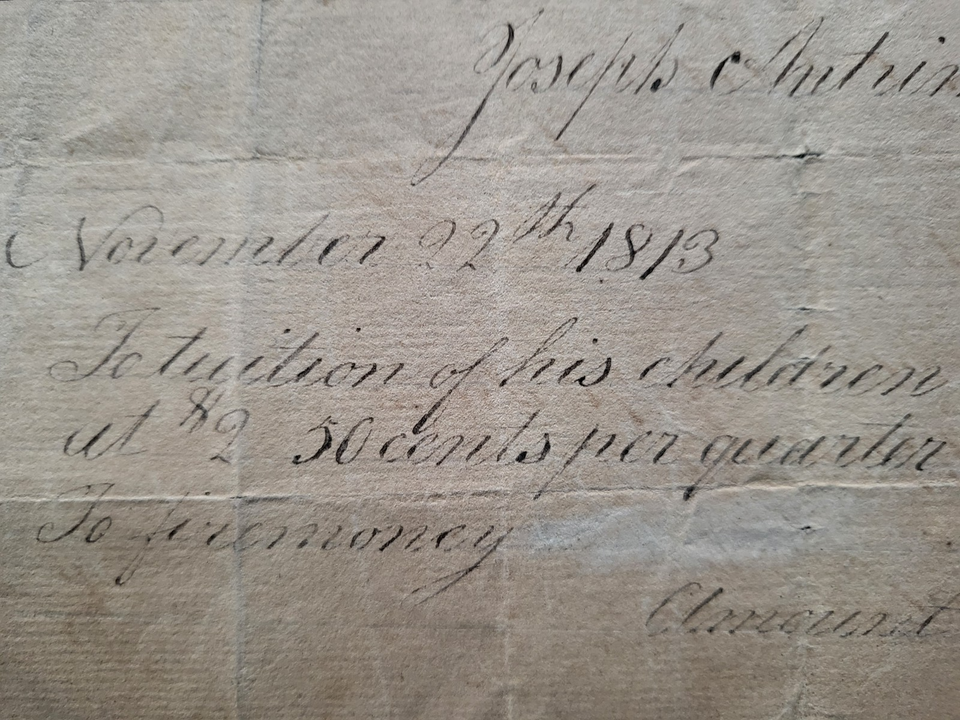 Joseph Antrim
November 22th 1813
To tuition of his children
at $2 50 cents per quarter
To firemoney
Amount